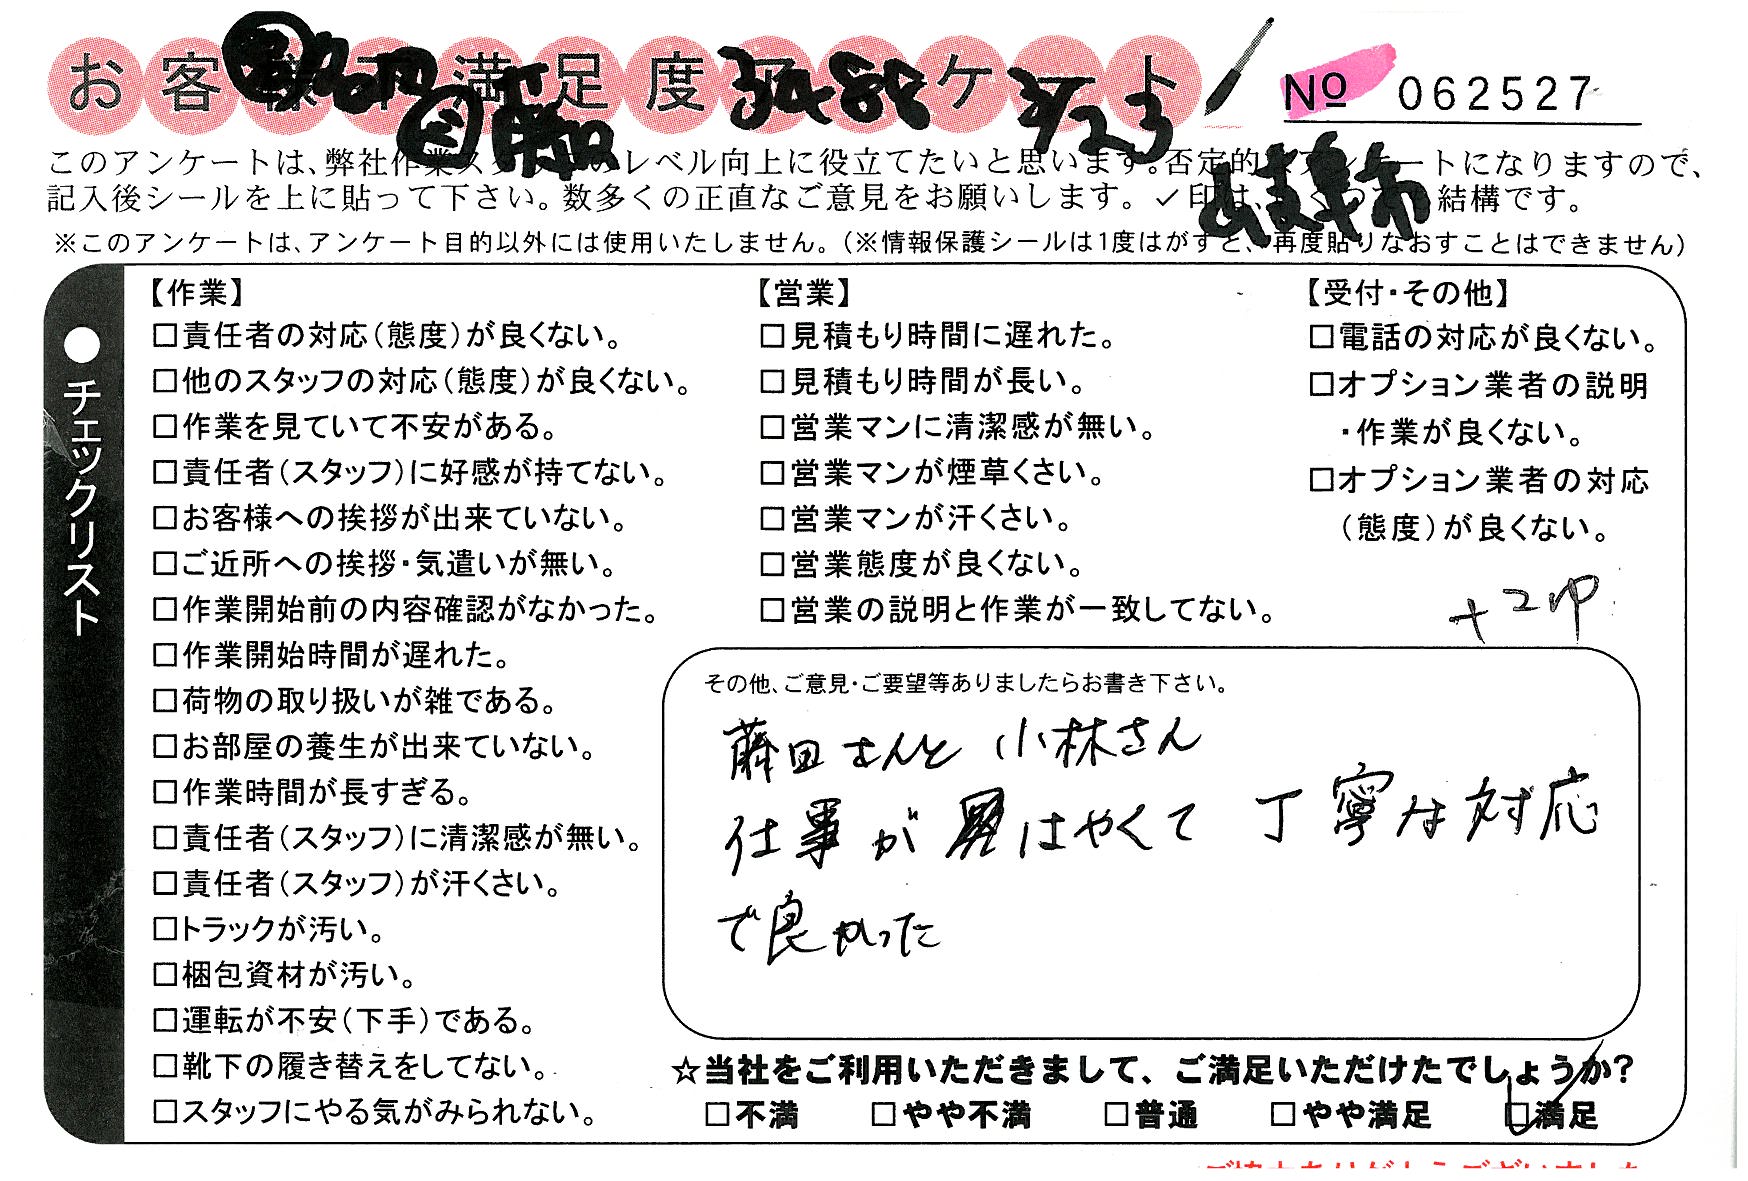 お客様不満足度アンケート
3488
3/23
岐阜市
№ 062527
このアンケートは、弊社作業スタッフのレベル向上に役立てたいと思います。否定的なアンケートになりますので、
記入後シールを上に貼って下さい。数多くの正直なご意見をお願いします。✓印は、いくつでも結構です。
※このアンケートは、アンケート目的以外には使用いたしません。(※情報保護シールは1度はがすと、再度貼りなおすことはできません)
●チェックリスト
【作業】
□責任者の対応(態度)が良くない。
□他のスタッフの対応(態度)が良くない。
□作業を見ていて不安がある。
□責任者(スタッフ)に好感が持てない。
□お客様への挨拶が出来ていない。
□ご近所への挨拶・気遣いが無い。
□作業開始前の内容確認がなかった。
□作業開始時間が遅れた。
□荷物の取り扱いが雑である。
□お部屋の養生が出来ていない。
□作業時間が長すぎる。
□責任者(スタッフ)に清潔感が無い。
□責任者(スタッフ)が汗くさい。
□トラックが汚い。
□梱包資材が汚い。
□運転が不安(下手)である。
□靴下の履き替えをしてない。
□スタッフにやる気がみられない。
【営業】
□見積もり時間に遅れた。
□見積もり時間が長い。
□営業マンに清潔感が無い。
□営業マンが煙草くさい。
□営業マンが汗くさい。
□営業態度が良くない。
□営業の説明と作業が一致してない。
【受付・その他】
□電話の対応が良くない。
□オプション業者の説明
・作業が良くない。
□オプション業者の対応
(態度)が良くない。
その他、ご意見・ご要望等ありましたらお書き下さい。
藤田さんと 小林さん
仕事が はやくて 丁寧な対応
で良かった
☆当社をご利用いただきまして、ご満足いただけたでしょうか?
□不満 □やや不満 □普通 □やや満足 ☑満足
ご協力ありがとうございました